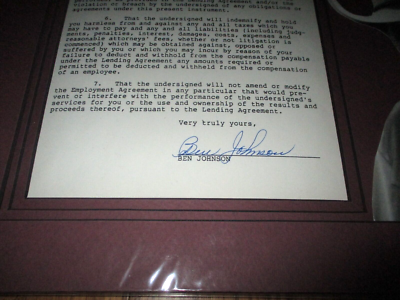 violation or breach by the undersigned of any obligations or
agreements under this present instrument.
6. That the undersigned will indemnify and hold
you harmless from and against any and all taxes which you
may have to pay and any and all liabilities (including judg-
ments, penalties, interest, damages, costs, expenses and
reasonable attorneys' fees, whether or not litigation is
commenced) which may be obtained against, opposed or
suffered by you or which you may incur by reason of your
failure to deduct and withhold from the compensation payable
under the Lending Agreement any amounts required or
permitted to be deducted and withheld from the compensation
of an employee.
7. That the undersigned will not amend or modify
the Employment Agreement in any particular that would pre-
vent or interfere with the performance of the undersigned's
services for you or the use and ownership of the results and
proceeds thereof, pursuant to the Lending Agreement.
Very truly yours,
Ben Johnson
BEN JOHNSON